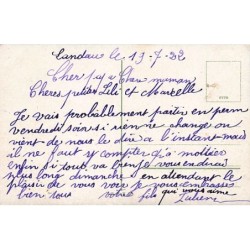 Landau le 19-7-22
Cher papa Chère maman
Chères petites Lili et Marcelle
Je vais probablement partir en perm
vendredi soir si rien ne change on
vient de nous le dire à l'instant mais
il ne faut y compter qu'à moitier
enfin si tout va bien je vous en dirai
plus long dimanche en attendant le
plaisir de vous voir je vous embrasse
bien tous votre fils qui vous aime